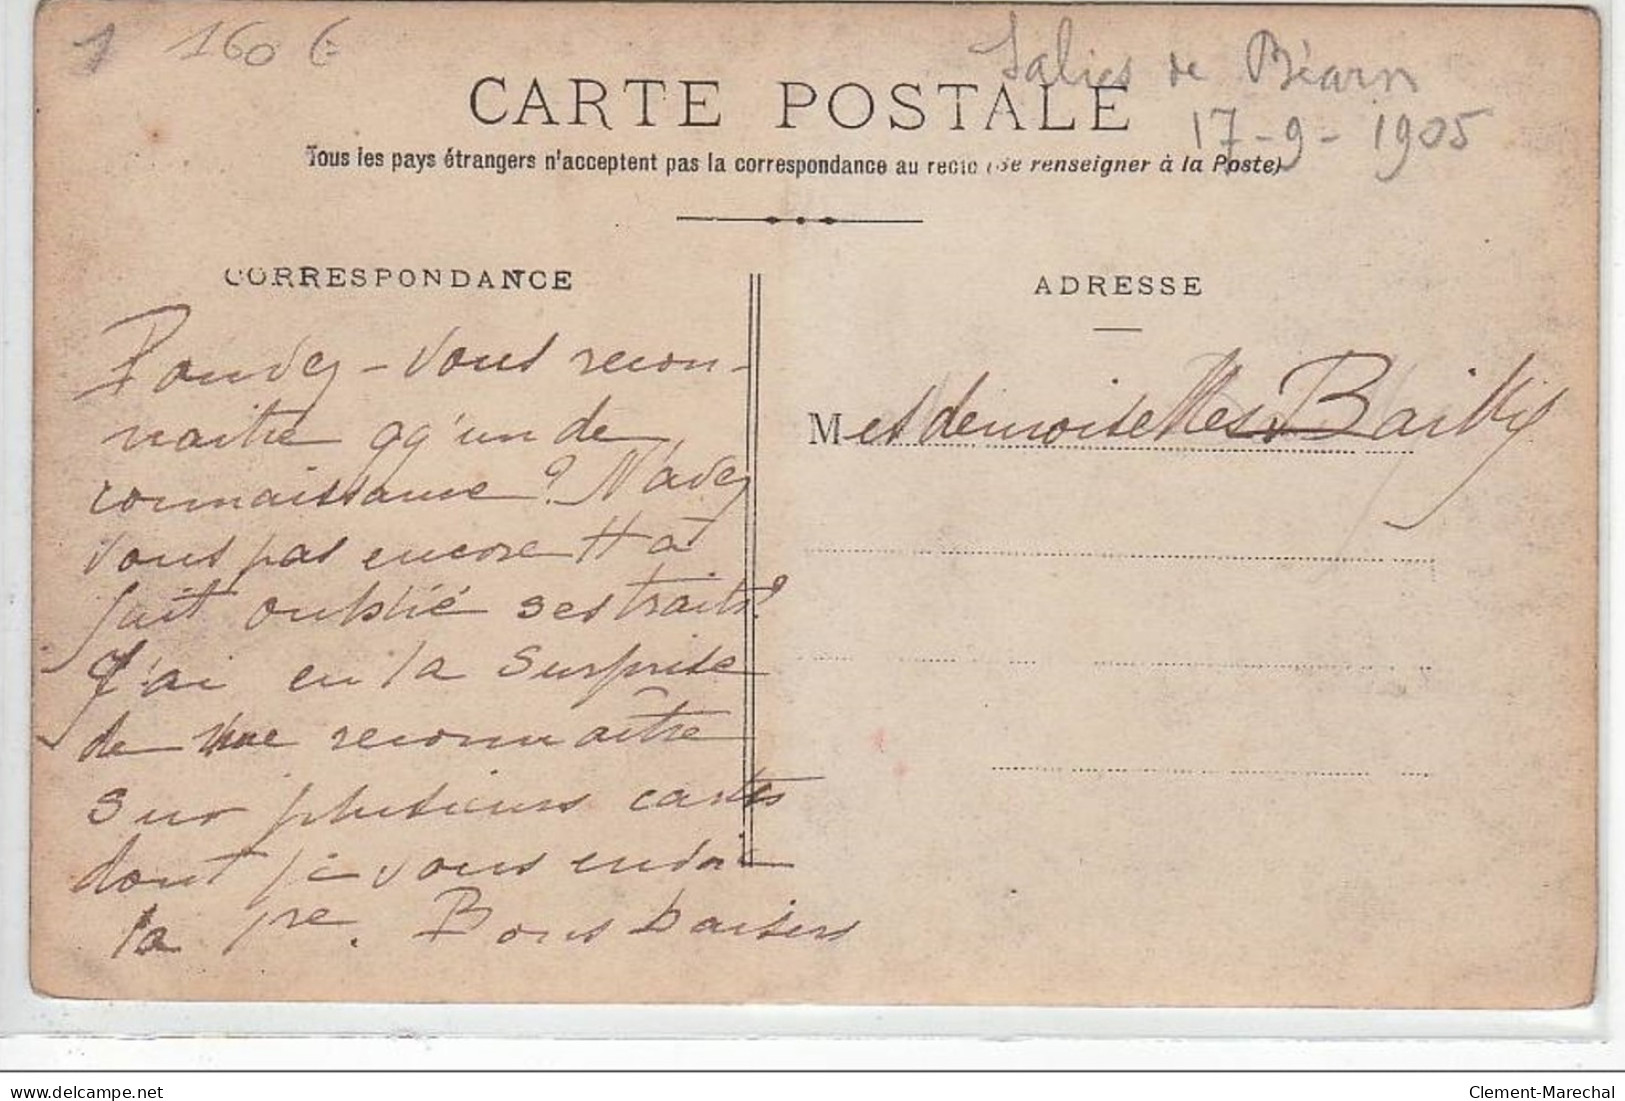 1 160 €
Salies de Béarn
17-9-1905
CARTE POSTALE
Tous les pays étrangers n'acceptent pas la correspondance au recto (Se renseigner à la Poste)
CORRESPONDANCE
Pouvez-vous recon-
naître qq'un de
connaissance? N'avez
vous pas encore tt à
fait oublié ses traits?
J'ai eu la surprise
de me reconnaître
sur plusieurs cartes
dont je vous envoie
la 1re. Bons baisers
ADRESSE
Mesdemoiselles Bailly
delcampe.net
Clement-Marechal